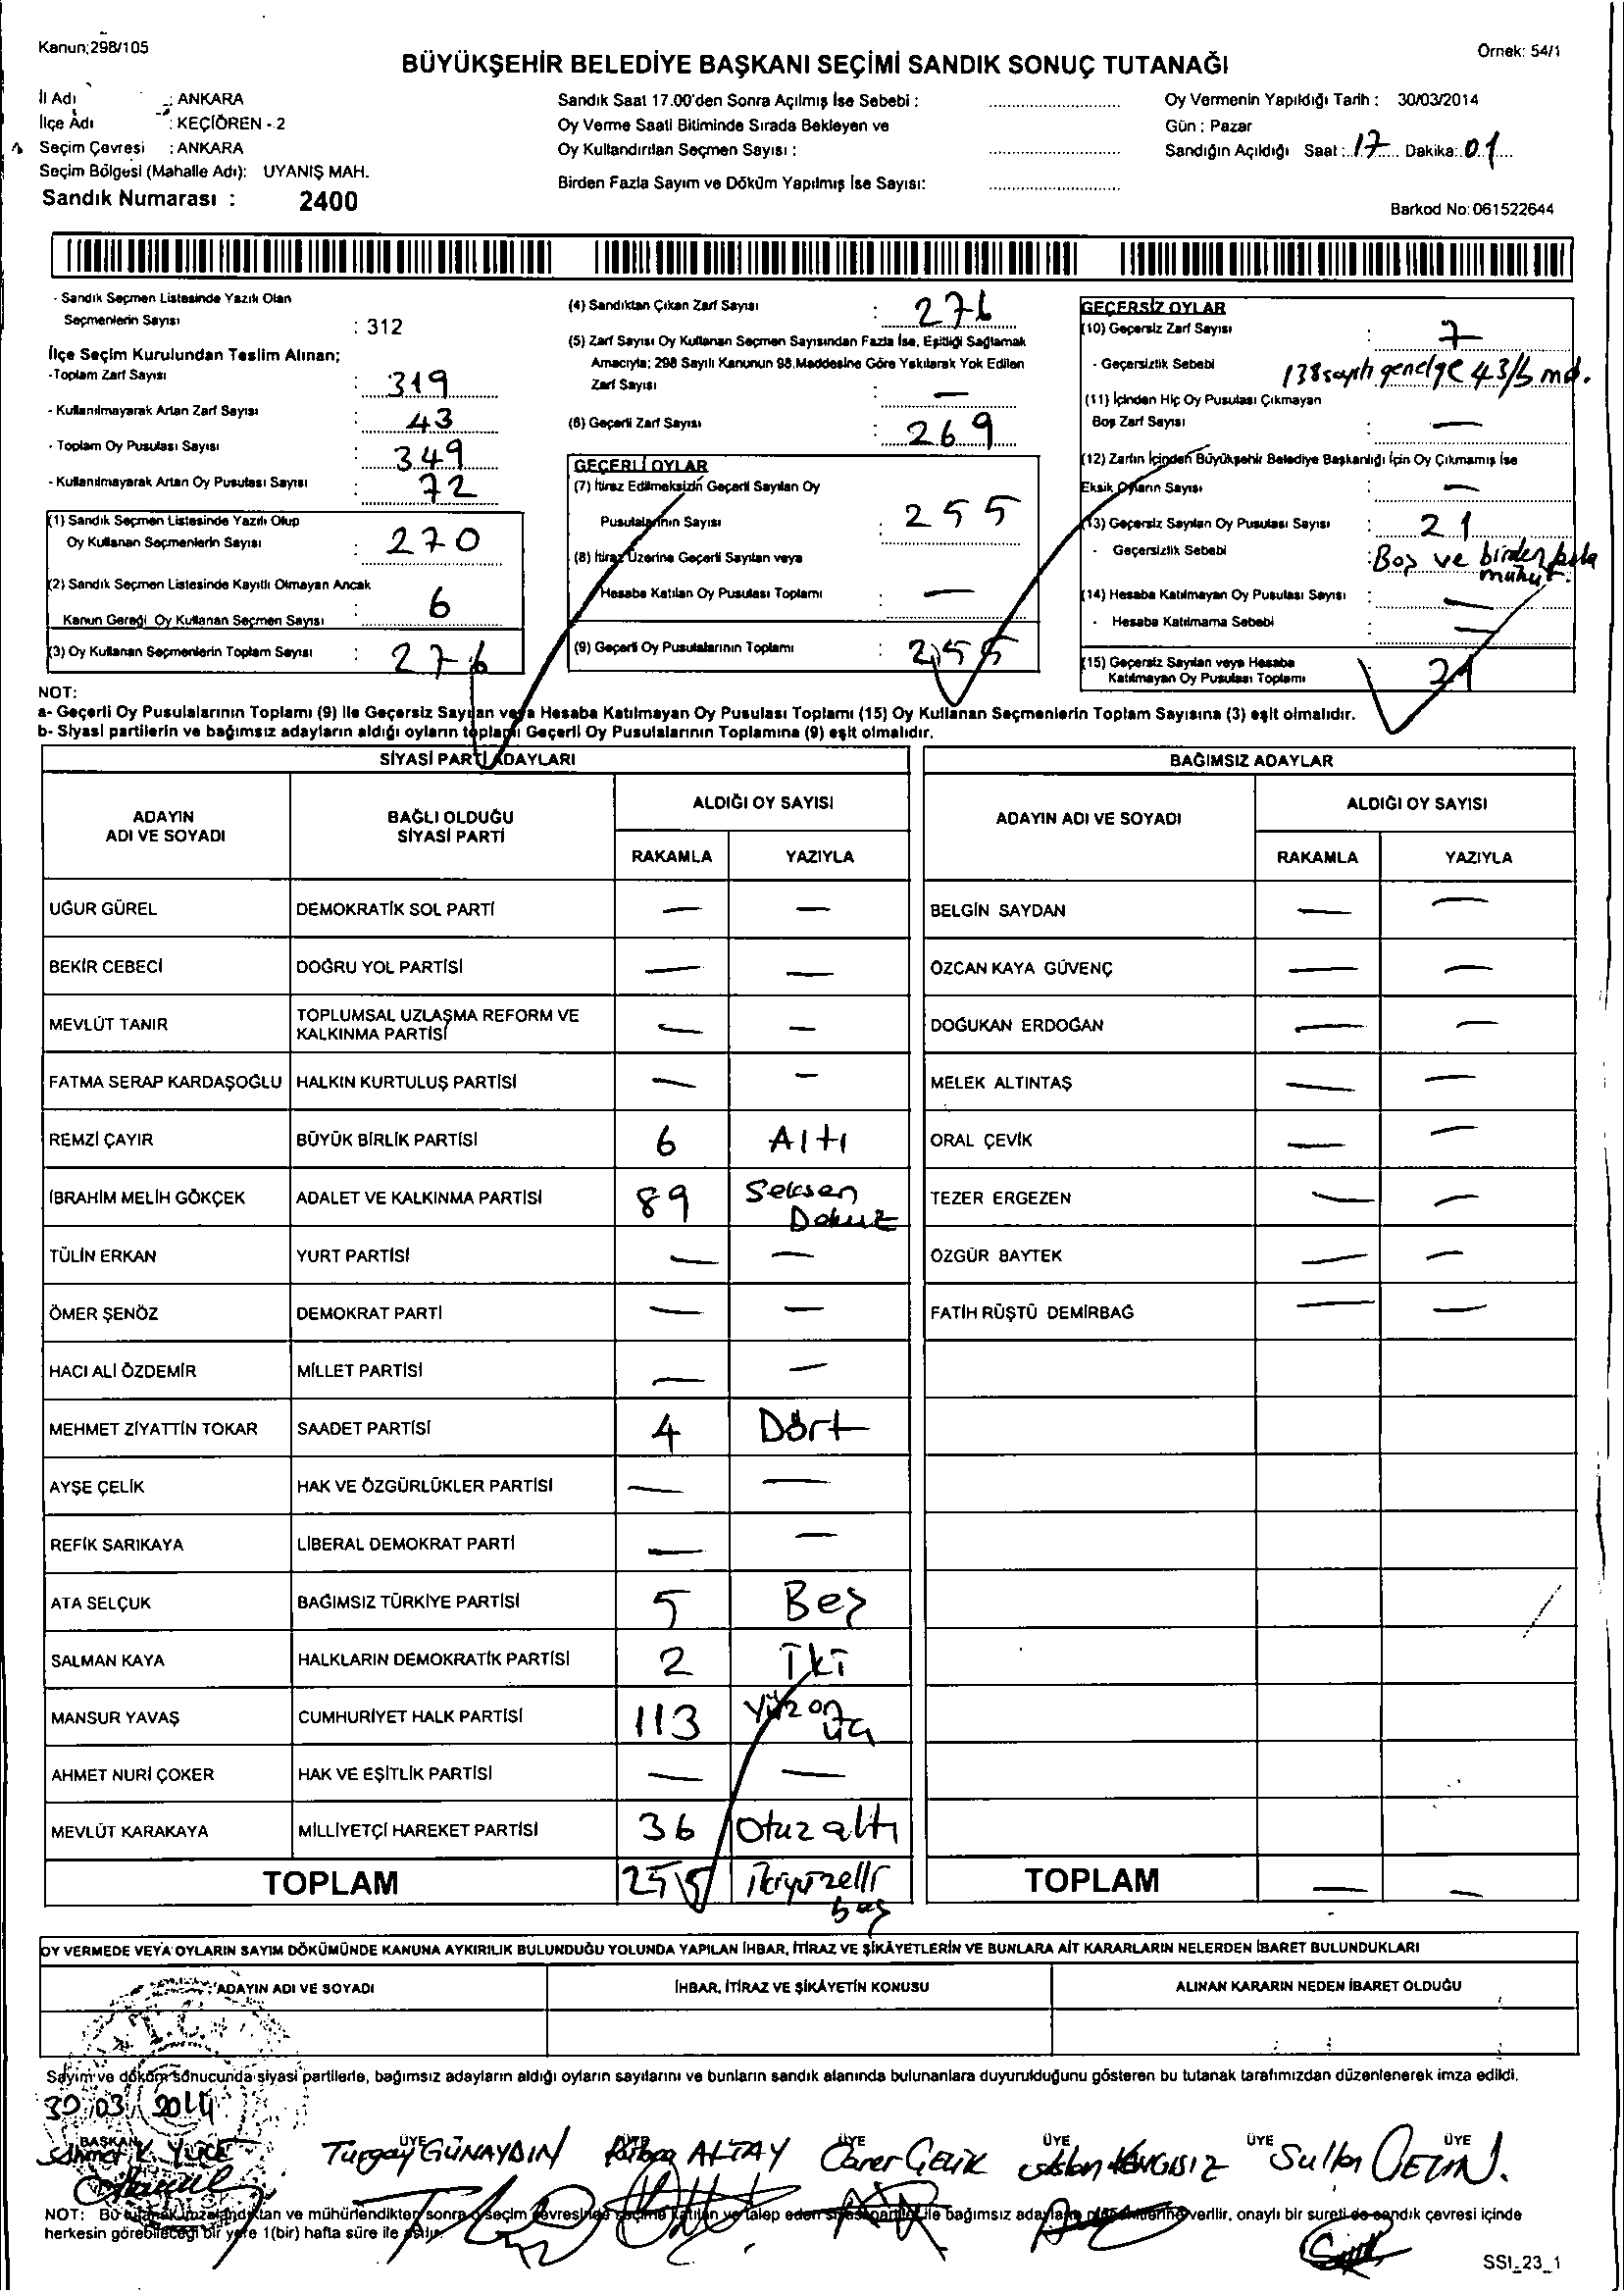 Kanun;298/105
Örnek: 54/1
BÜYÜKŞEHİR BELEDİYE BAŞKANI SEÇİMİ SANDIK SONUÇ TUTANAĞI
İl Adı : ANKARA
İlçe Adı : KEÇİÖREN - 2
Seçim Çevresi : ANKARA
Seçim Bölgesi (Mahalle Adı): UYANIŞ MAH.
Sandık Numarası : 2400
Sandık Saat 17.00'den Sonra Açılmış İse Sebebi :
Oy Verme Saati Bitiminde Sırada Bekleyen ve
Oy Kullandırılan Seçmen Sayısı :
Birden Fazla Sayım ve Döküm Yapılmış İse Sayısı:
Oy Vermenin Yapıldığı Tarih : 30/03/2014
Gün : Pazar
Sandığın Açıldığı Saat : 17 Dakika: 01
Barkod No: 061522644
- Sandık Seçmen Listesinde Yazılı Olan
Seçmenlerin Sayısı : 312
İlçe Seçim Kurulundan Teslim Alınan;
-Toplam Zarf Sayısı : 319
- Kullanılmayarak Artan Zarf Sayısı : 43
- Toplam Oy Pusulası Sayısı : 349
- Kullanılmayarak Artan Oy Pusulası Sayısı : 72
(1) Sandık Seçmen Listesinde Yazılı Olup
Oy Kullanan Seçmenlerin Sayısı : 270
(2) Sandık Seçmen Listesinde Kayıtlı Olmayan Ancak
Kanun Gereği Oy Kullanan Seçmen Sayısı : 6
(3) Oy Kullanan Seçmenlerin Toplam Sayısı : 276
(4) Sandıktan Çıkan Zarf Sayısı : 276
(5) Zarf Sayısı Oy Kullanan Seçmen Sayısından Fazla İse, Eşitliği Sağlamak
Amacıyla; 298 Sayılı Kanunun 98.Maddesine Göre Yakılarak Yok Edilen
Zarf Sayısı : —
(6) Geçerli Zarf Sayısı : 269
GEÇERLİ OYLAR
(7) İtiraz Edilmeksizin Geçerli Sayılan Oy
Pusulalarının Sayısı : 255
(8) İtiraz Üzerine Geçerli Sayılan veya
Hesaba Katılan Oy Pusulası Toplamı : —
(9) Geçerli Oy Pusulalarının Toplamı : 255
GEÇERSİZ OYLAR
(10) Geçersiz Zarf Sayısı : 7
- Geçersizlik Sebebi : 138 sayılı genelge 43/b md.
(11) İçinden Hiç Oy Pusulası Çıkmayan
Boş Zarf Sayısı : —
(12) Zarfın İçinden Büyükşehir Belediye Başkanlığı İçin Oy Çıkmamış İse
Eksik Oyların Sayısı : —
(13) Geçersiz Sayılan Oy Pusulası Sayısı : 21
- Geçersizlik Sebebi : Boş ve birden fazla
mühür.
(14) Hesaba Katılmayan Oy Pusulası Sayısı : —
- Hesaba Katılmama Sebebi : —
(15) Geçersiz Sayılan veya Hesaba
Katılmayan Oy Pusulası Toplamı : 21
NOT:
a- Geçerli Oy Pusulalarının Toplamı (9) ile Geçersiz Sayılan veya Hesaba Katılmayan Oy Pusulası Toplamı (15) Oy Kullanan Seçmenlerin Toplam Sayısına (3) eşit olmalıdır.
b- Siyasi partilerin ve bağımsız adayların aldığı oyların toplamı Geçerli Oy Pusulalarının Toplamına (9) eşit olmalıdır.
SİYASİ PARTİ ADAYLARI
ADAYIN ADI VE SOYADI BAĞLI OLDUĞU SİYASİ PARTİ ALDIĞI OY SAYISI
RAKAMLA YAZIYLA
UĞUR GÜREL DEMOKRATİK SOL PARTİ — —
BEKİR CEBECİ DOĞRU YOL PARTİSİ — —
MEVLÜT TANIR TOPLUMSAL UZLAŞMA REFORM VE
KALKINMA PARTİSİ — —
FATMA SERAP KARDAŞOĞLU HALKIN KURTULUŞ PARTİSİ — —
REMZİ ÇAYIR BÜYÜK BİRLİK PARTİSİ 6 Altı
İBRAHİM MELİH GÖKÇEK ADALET VE KALKINMA PARTİSİ 89 Seksen
Dokuz
TÜLİN ERKAN YURT PARTİSİ — —
ÖMER ŞENÖZ DEMOKRAT PARTİ — —
HACI ALİ ÖZDEMİR MİLLET PARTİSİ — —
MEHMET ZİYATTİN TOKAR SAADET PARTİSİ 4 Dört
AYŞE ÇELİK HAK VE ÖZGÜRLÜKLER PARTİSİ — —
REFİK SARIKAYA LİBERAL DEMOKRAT PARTİ — —
ATA SELÇUK BAĞIMSIZ TÜRKİYE PARTİSİ 5 Beş
SALMAN KAYA HALKLARIN DEMOKRATİK PARTİSİ 2 İki
MANSUR YAVAŞ CUMHURİYET HALK PARTİSİ 113 Yüz on
üç
AHMET NURİ ÇOKER HAK VE EŞİTLİK PARTİSİ — —
MEVLÜT KARAKAYA MİLLİYETÇİ HAREKET PARTİSİ 36 Otuz altı
TOPLAM 255 ikiyüzelli
beş
BAĞIMSIZ ADAYLAR
ADAYIN ADI VE SOYADI ALDIĞI OY SAYISI
RAKAMLA YAZIYLA
BELGİN SAYDAN — —
ÖZCAN KAYA GÜVENÇ — —
DOĞUKAN ERDOĞAN — —
MELEK ALTINTAŞ — —
ORAL ÇEVİK — —
TEZER ERGEZEN — —
ÖZGÜR BAYTEK — —
FATİH RÜŞTÜ DEMİRBAĞ — —
TOPLAM — —
OY VERMEDE VEYA OYLARIN SAYIM DÖKÜMÜNDE KANUNA AYKIRILIK BULUNDUĞU YOLUNDA YAPILAN İHBAR, İTİRAZ VE ŞİKÂYETLERİN VE BUNLARA AİT KARARLARIN NELERDEN İBARET BULUNDUKLARI
ADAYIN ADI VE SOYADI İHBAR, İTİRAZ VE ŞİKÂYETİN KONUSU ALINAN KARARIN NEDEN İBARET OLDUĞU
Sayım ve döküm sonucunda siyasi partilerle, bağımsız adayların aldığı oyların sayılarını ve bunların sandık alanında bulunanlara duyurulduğunu gösteren bu tutanak tarafımızdan düzenlenerek imza edildi.
30/03/2014
BAŞKAN ÜYE ÜYE ÜYE ÜYE ÜYE ÜYE
YÜCE Turgay GÜNAYDIN ALTAY ÇELİK Sultan ÇETİN.
NOT: Bu tutanak imzalandıktan ve mühürlendikten sonra seçim çevresinde seçime katılan ve talep eden siyasi partiler ile bağımsız adayların müşahitlerine verilir, onaylı bir sureti de sandık çevresi içinde
herkesin görebileceği bir yere 1(bir) hafta süre ile asılır.
SSI_23_1